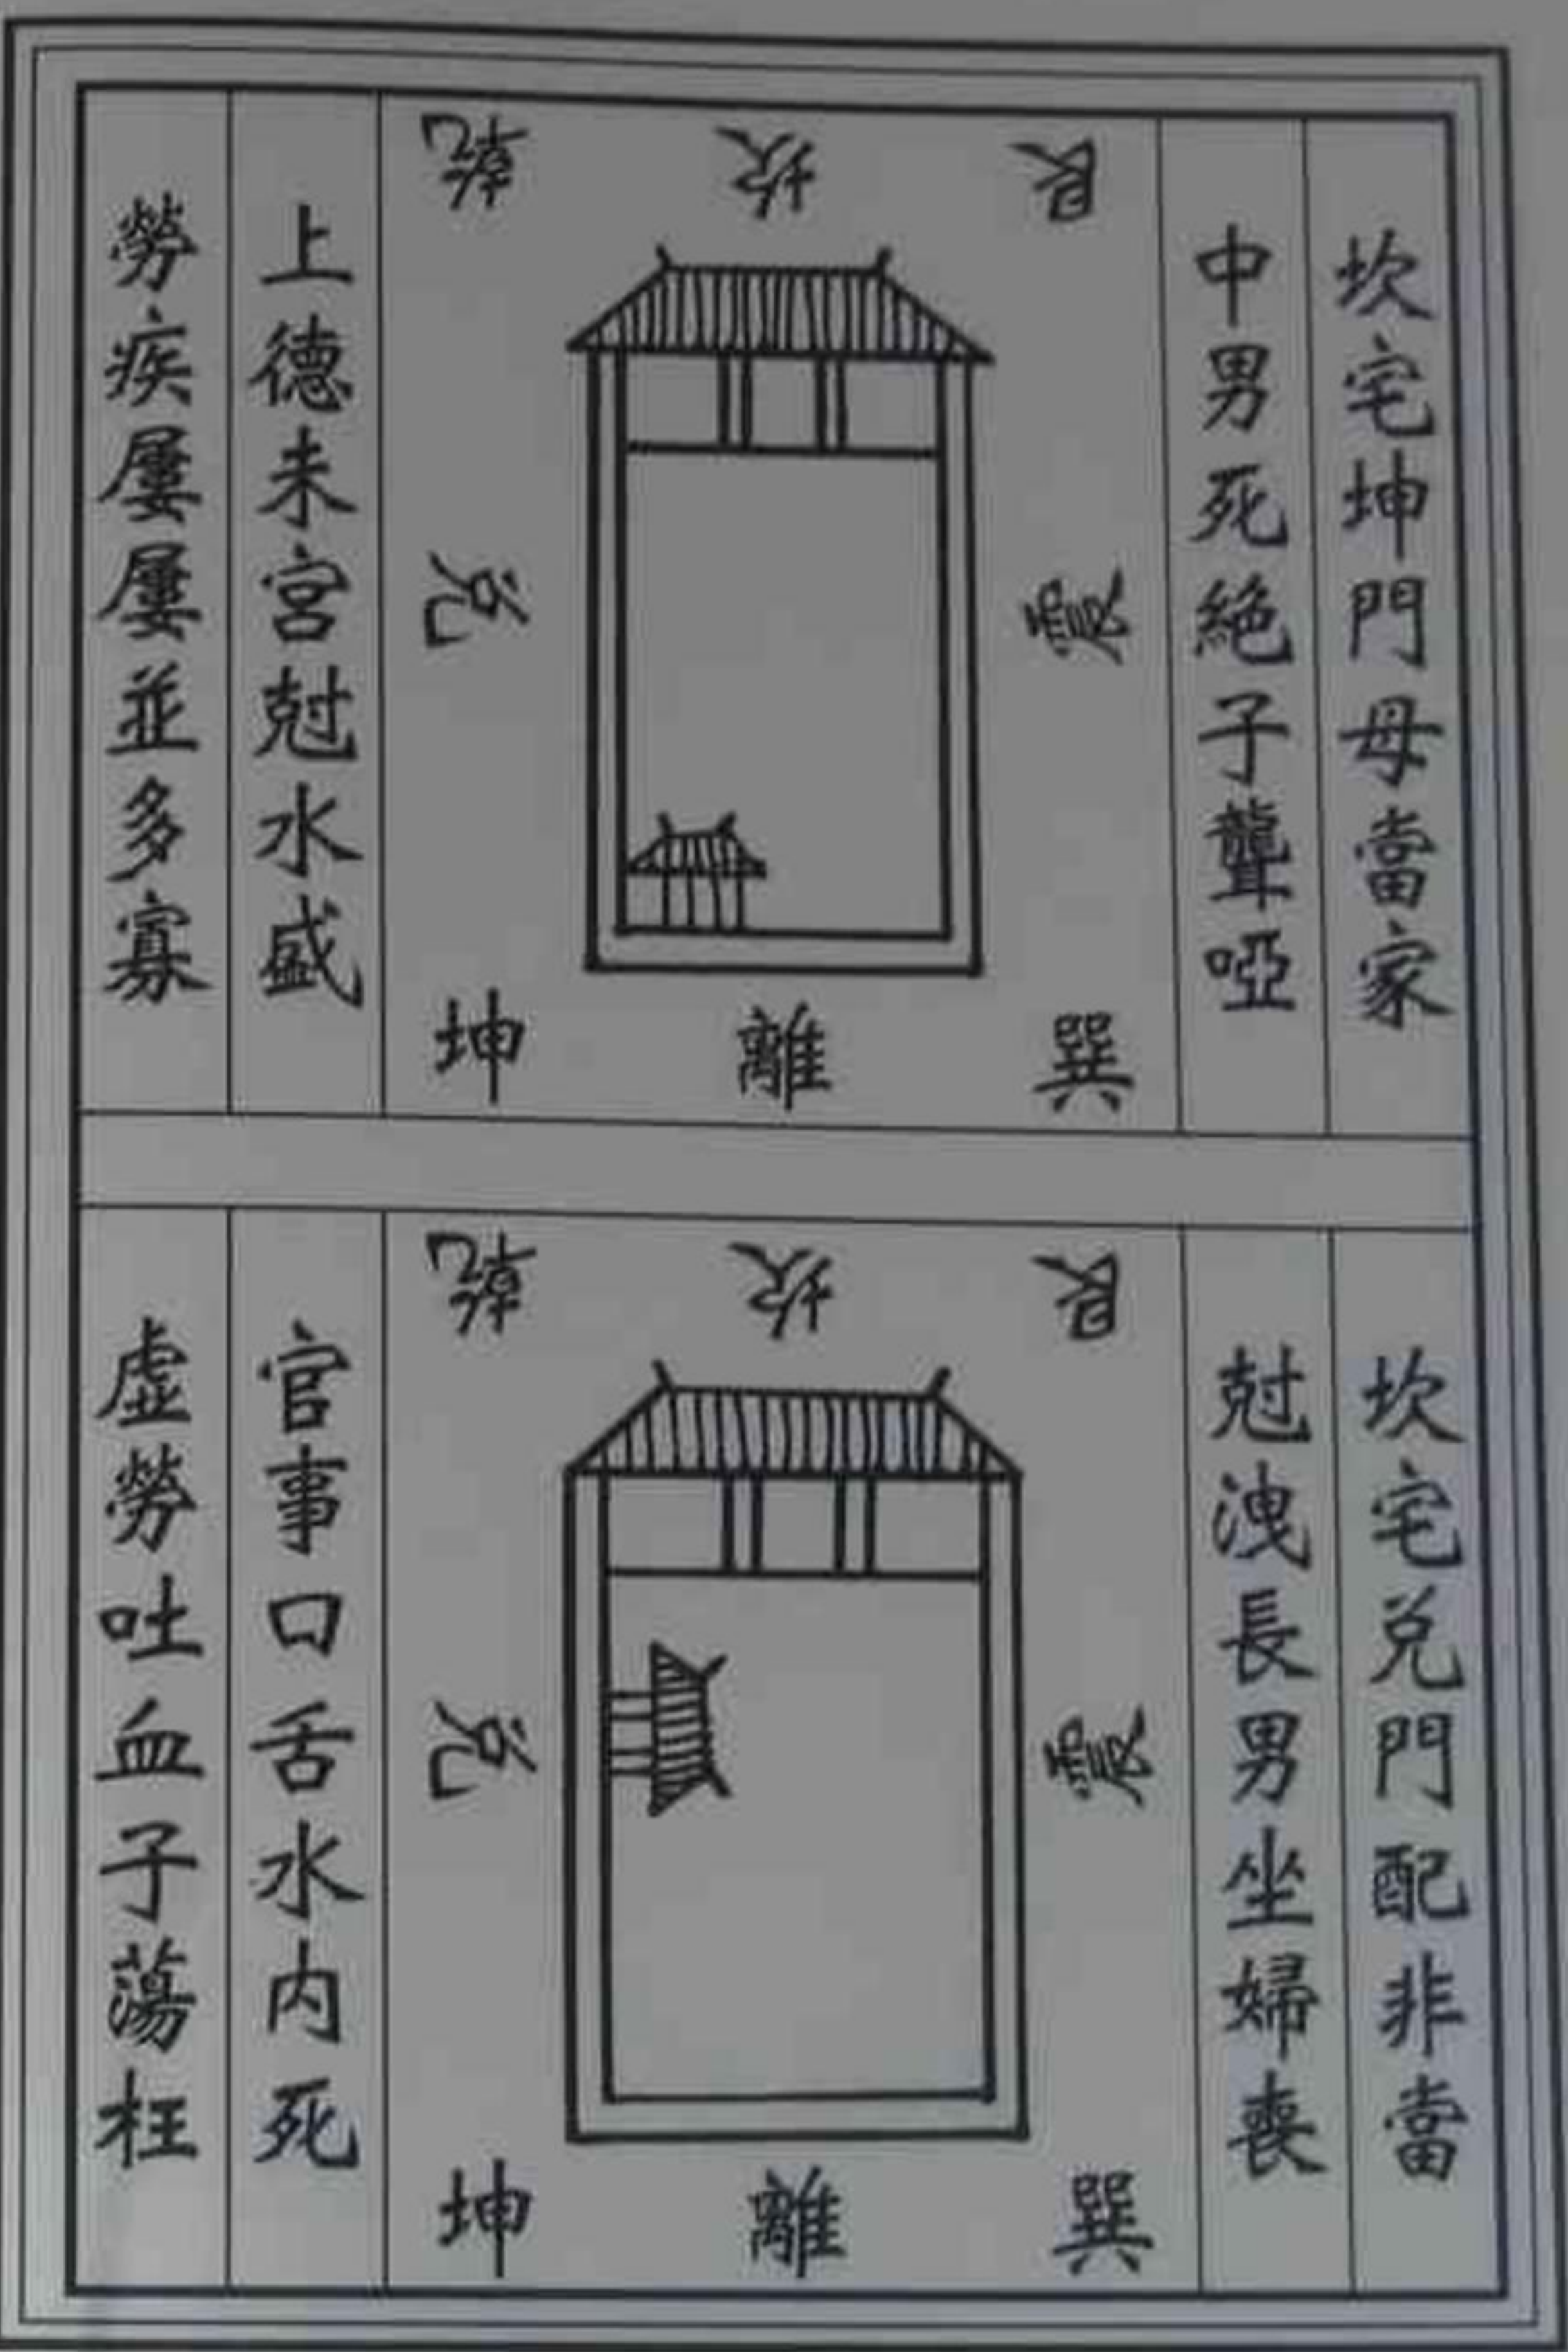 坎宅坤門母當家
中男死絕子聾啞
艮 坎 乾
震 兌
巽 離 坤
上德未宮尅水盛
勞疾屢屢並多寡
坎宅兌門配非當
尅洩長男坐婦喪
艮 坎 乾
震 兌
巽 離 坤
官事口舌水內死
虛勞吐血子蕩枉